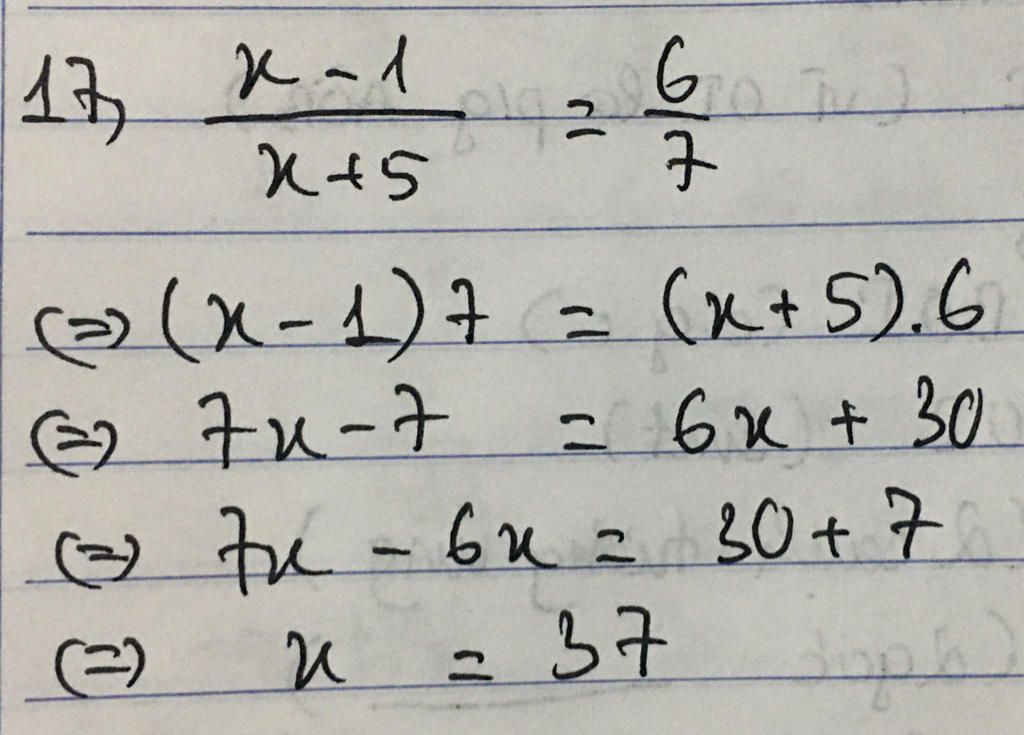 17, x - 1 / x + 5 = 6 / 7
(=) (x - 1) 7 = (x + 5) . 6
(=) 7x - 7 = 6x + 30
(=) 7x - 6x = 30 + 7
(=) x = 37